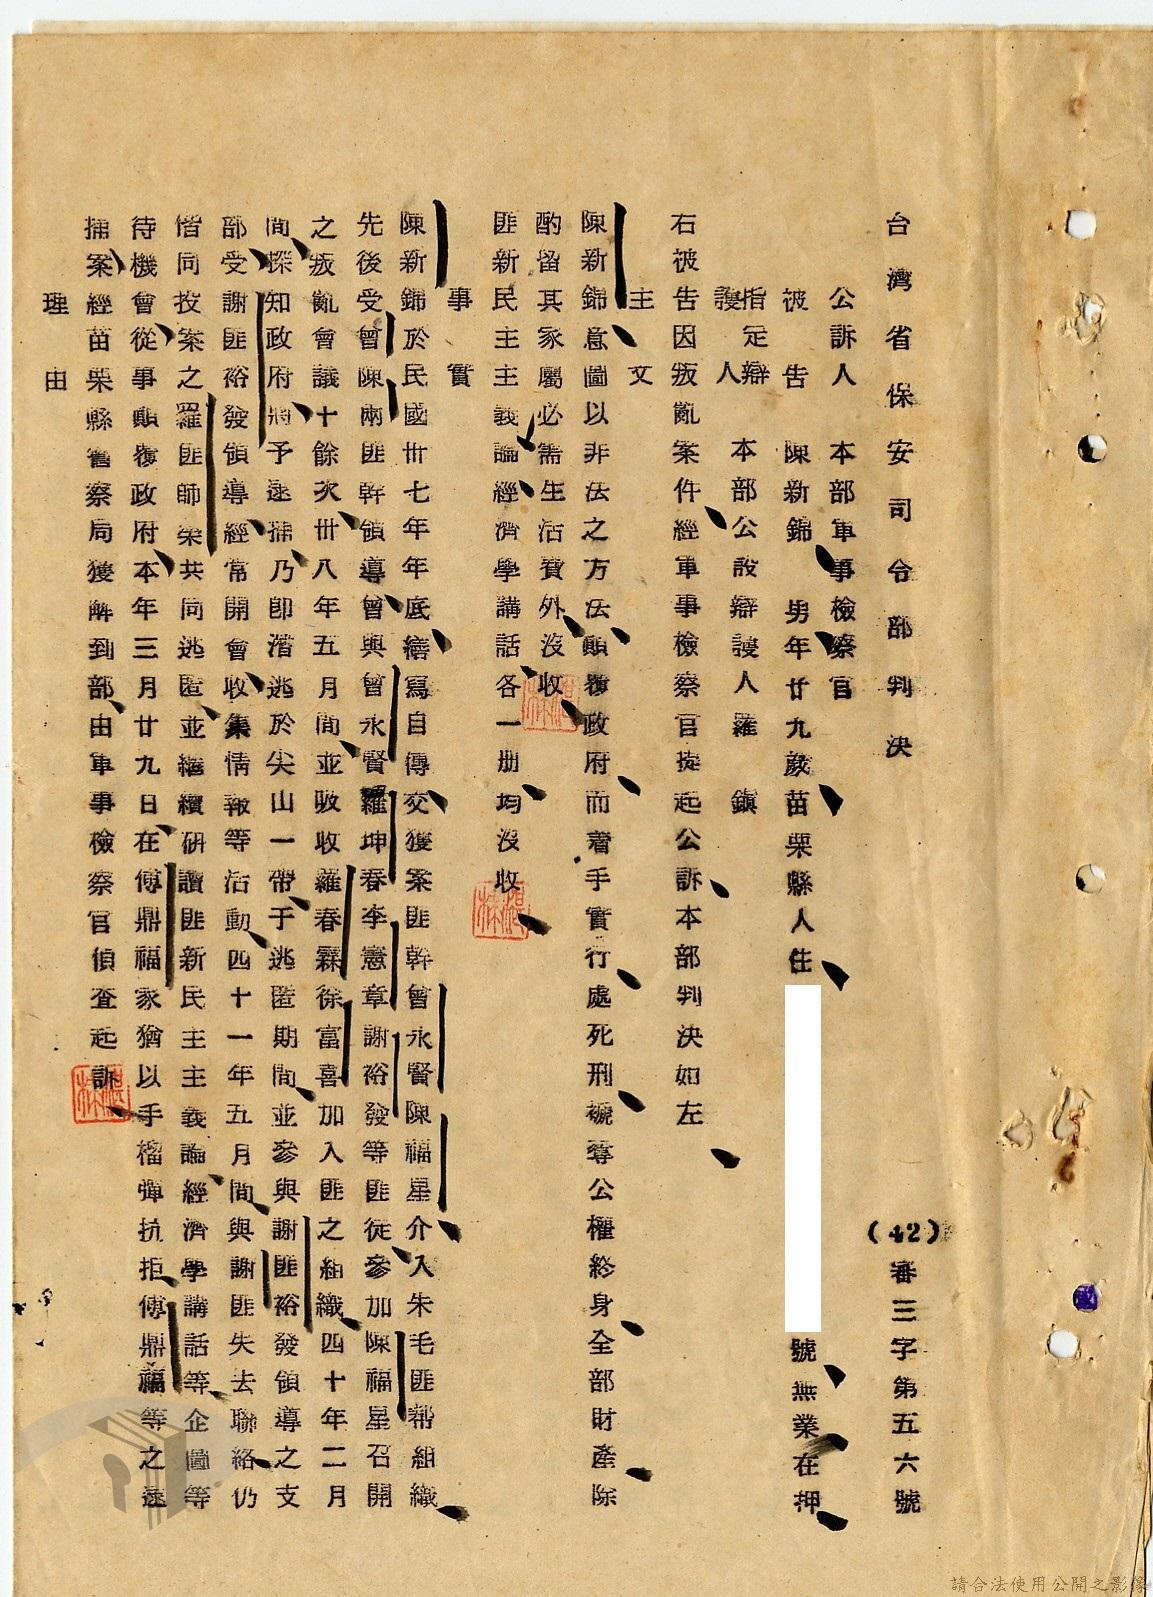 台灣省保安司令部判決
(42)審三字第五六號
公訴人　本部軍事檢察官
被告　陳新錦　男年廿九歲苗栗縣人住　號無業在押
指定辯護人　本部公設辯護人羅　鎮
右被告因叛亂案件經軍事檢察官提起公訴本部判決如左
主文
陳新錦意圖以非法之方法顛覆政府而着手實行處死刑褫奪公權終身全部財產除
酌留其家屬必需生活費外沒收
匪新民主主義論經濟學講話各一册均沒收
事實
陳新錦於民國卅七年年底繕寫自傳交獲案匪幹曾永賢陳福星介入朱毛匪幫組織
先後受曾陳兩匪幹領導曾與曾永賢羅坤春李憲章謝裕發等匪徒參加陳福星召開
之叛亂會議十餘次卅八年五月間並吸收羅春霖徐富喜加入匪之組織四十年二月
間探知政府將予逮捕乃卽潛逃於尖山一帶于逃匿期間並參與謝匪裕發領導之支
部受謝匪裕發領導經常開會收集情報等活動四十一年五月間與謝匪失去聯絡仍
偕同投案之羅匪師榮共同逃匿並繼續硏讀匪新民主主義論經濟學講話等企圖等
待機會從事顛覆政府本年三月廿九日在傅鼎福家猶以手榴彈抗拒傅鼎福等之逮
捕案經苗栗縣警察局獲解到部由軍事檢察官偵查起訴
理由
請合法使用公開之影像